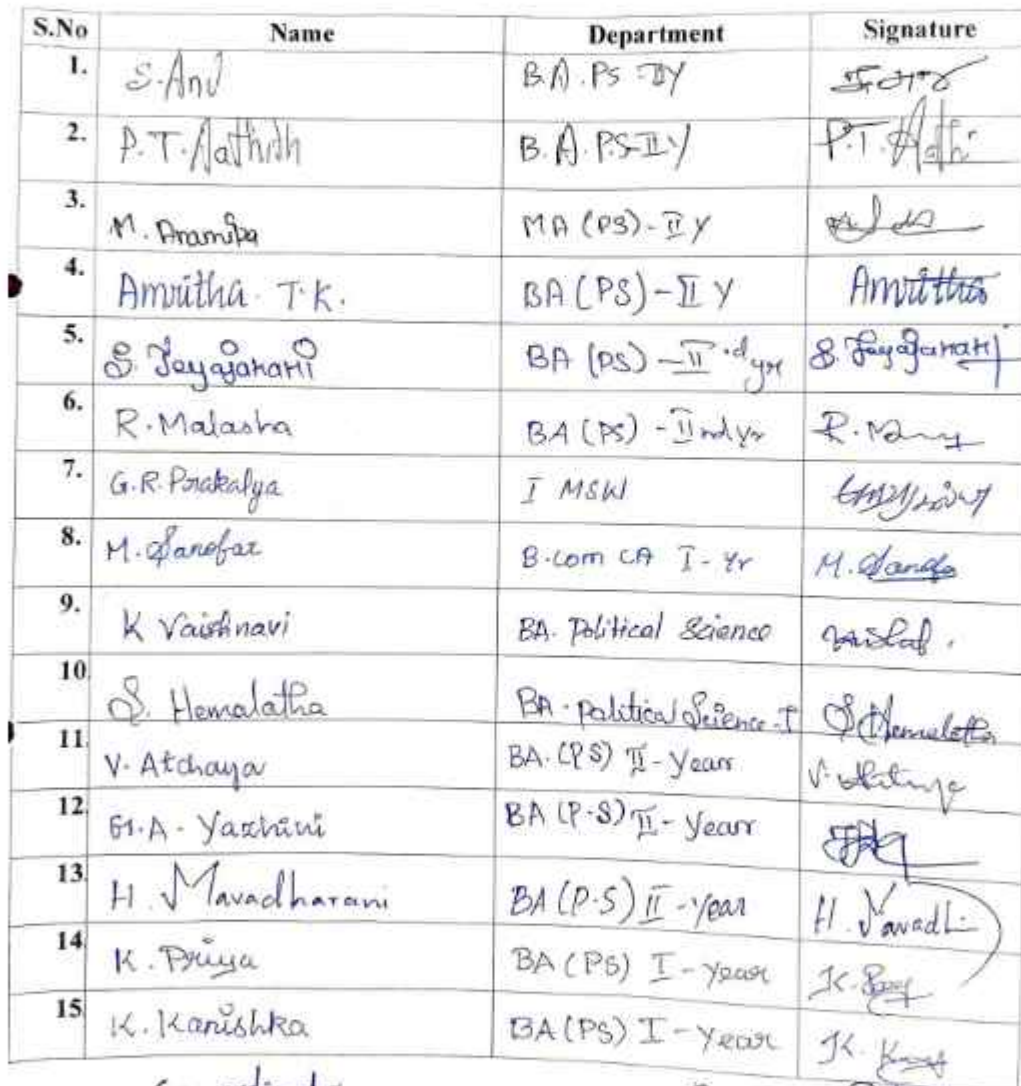 S.No Name Department Signature
1. S. Anu B.A. PS - II Y
2. P. T. Aathidh B. A. P.S-II-Y P.T. Aathi
3. M. Anamika MA (PS) - II Y
4. Amritha T.K. BA (PS) - II Y Amritha
5. S. Jeyajanani BA (PS) - II nd yr S. Jeyajanani
6. R. Malasha BA (PS) - II nd yr R.
7. G.R. Prakalya I MSW
8. M. Sanofar B.com CA I - Yr M. Sanofa
9. K Vaishnavi BA. Political Science
10 S. Hemalatha BA. political Science - I S Hemalatha
11. V. Atchaya BA. (PS) II - Year V.
12. M.A. Yazhini BA (P.S) II - Year
13 H. Mavadharani BA (P.S) II - year H.
14 K. Priya BA (PS) I - year K.
15 K. Kanishka BA (PS) I - Year K.